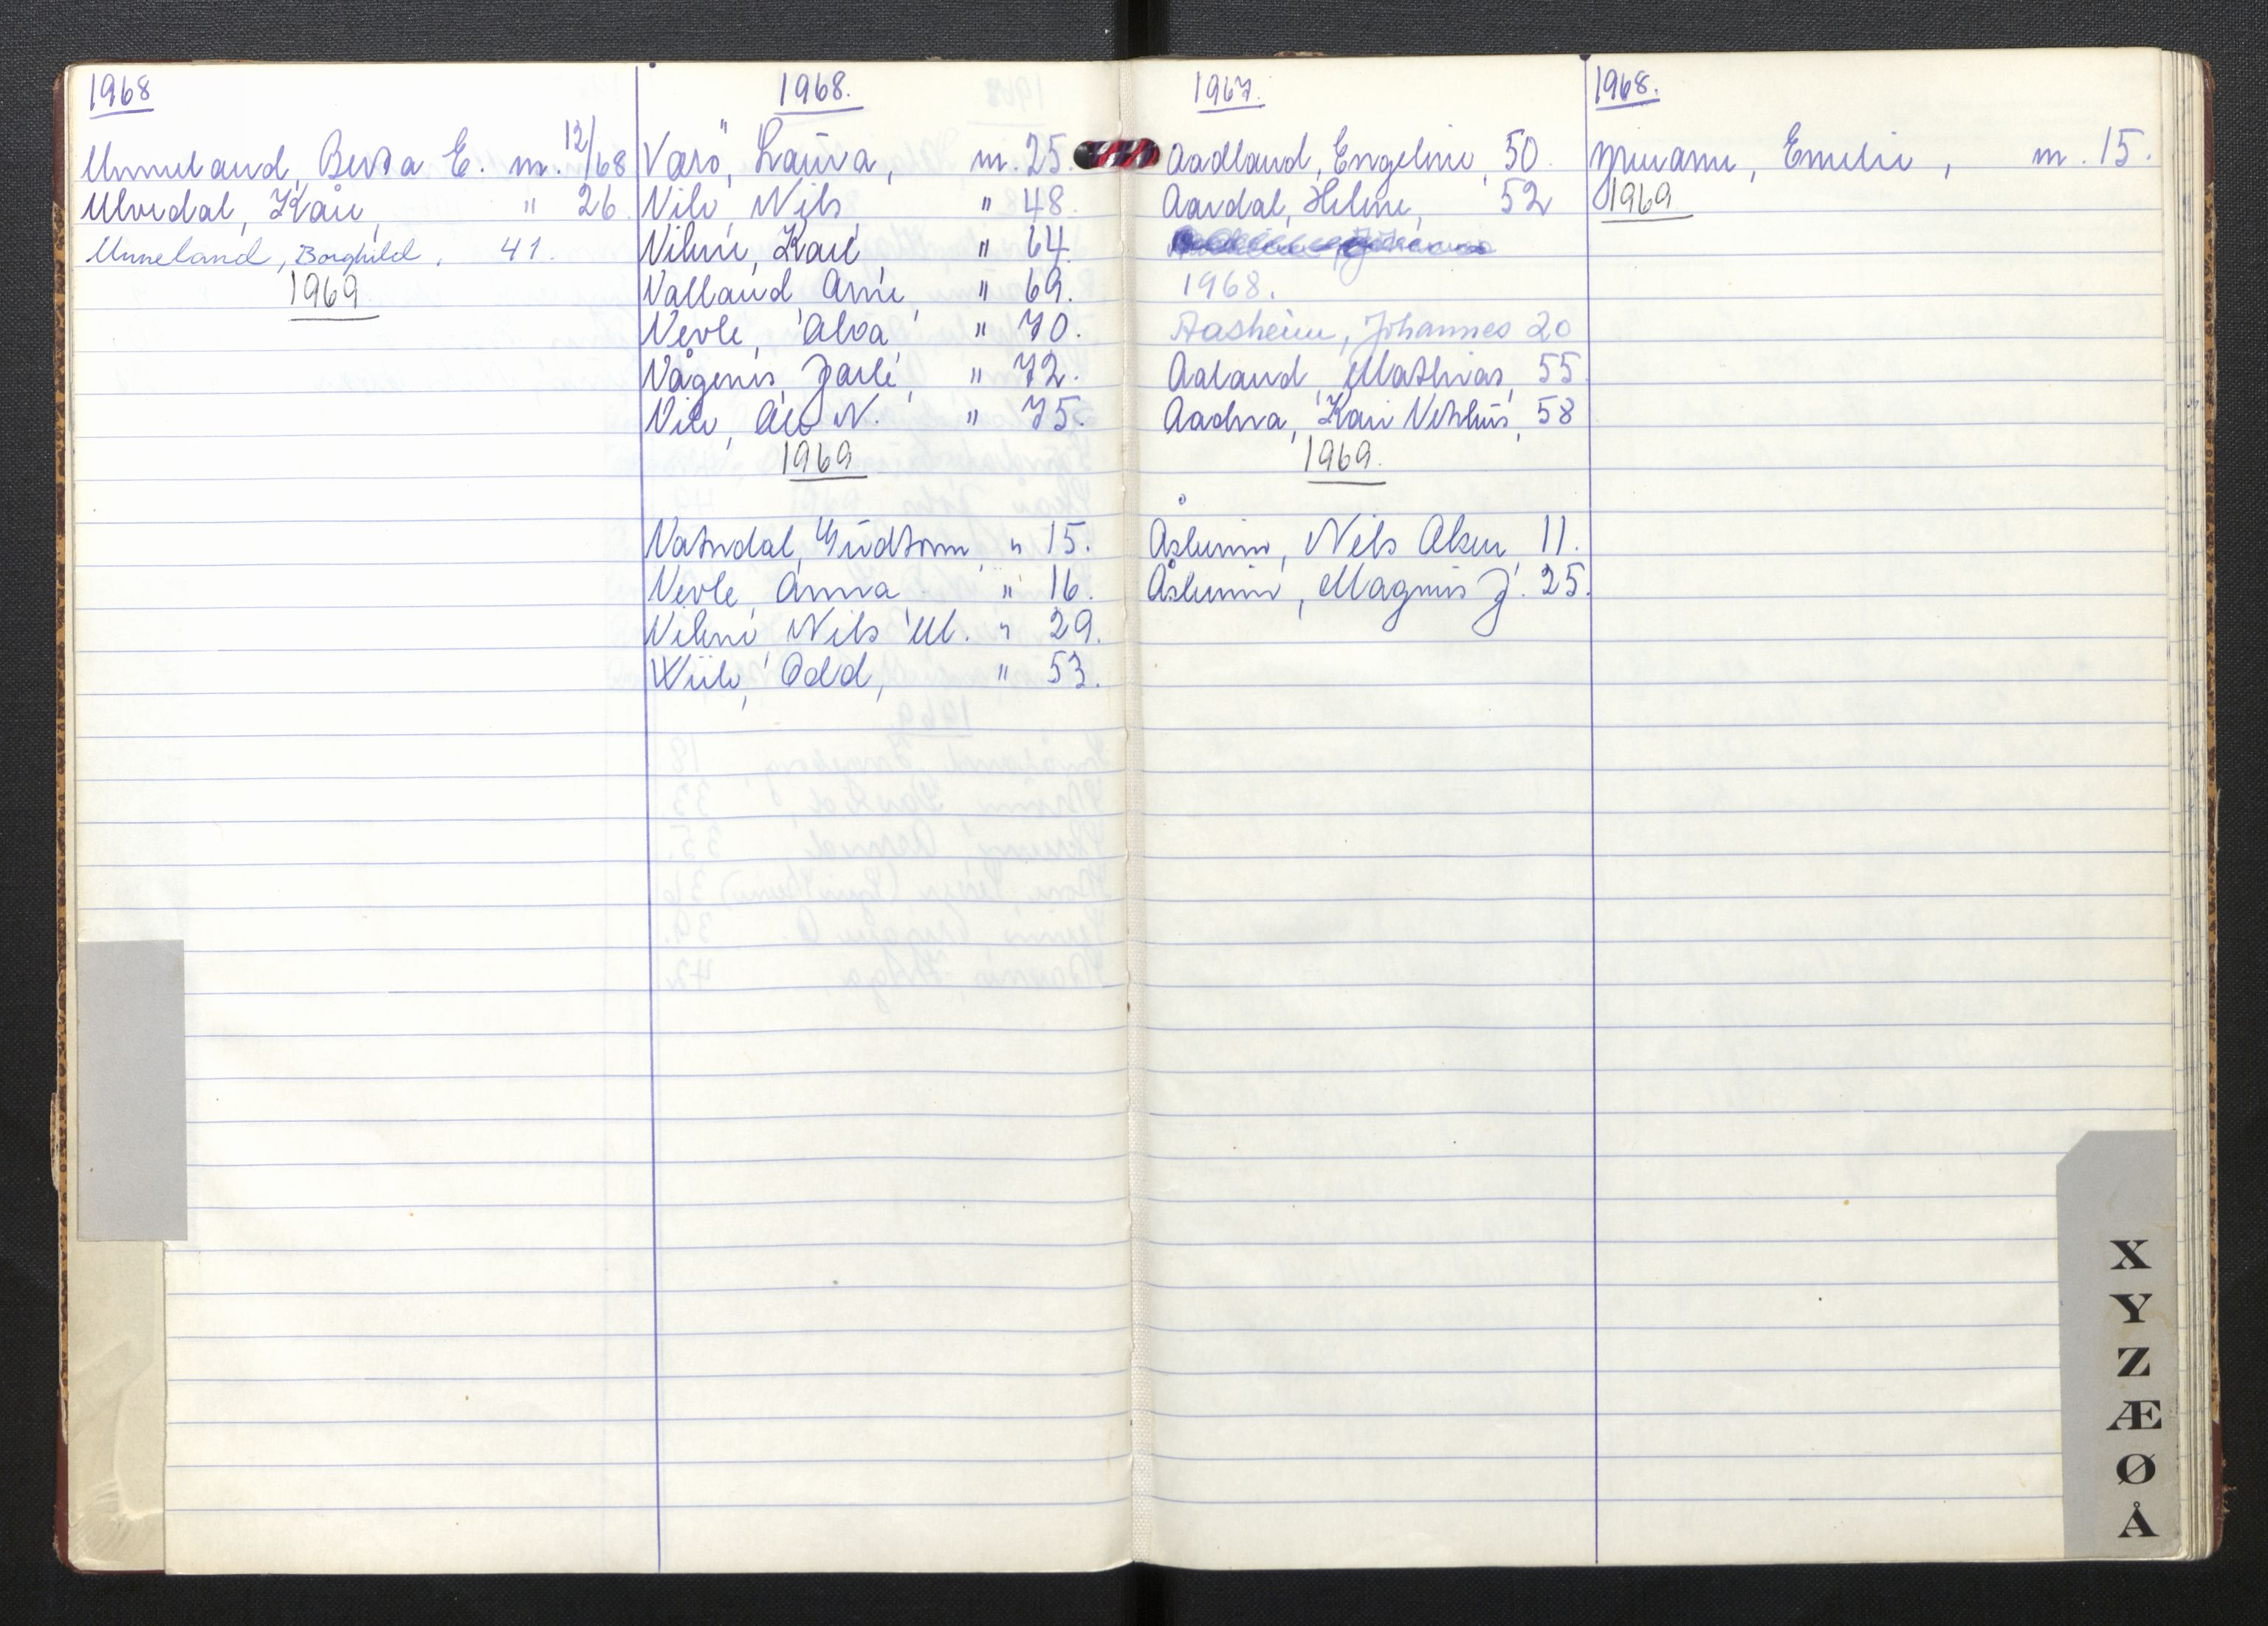 1968
Unneland, Berta E. m. 12/68
Ulvedal, Kåre, " 26.
Unneland, Borghild, 41.
1969
1968.
Værø, Laura, m. 25.
Vile, Nils, " 48.
Kåre " 64.
Valland, Arne, " 69.
Nevle, Alva " 70.
Vågenes, Jarle, " 72.
" 75.
1969
Vatndal, Gudtorm, " 15.
Nevle, Anna " 16.
Nils M. " 29.
Wiik, Odd, " 53.
1967.
Aadland, Engeline, 50.
Aardal, Helene, 52
1968.
Aasheim, Johannes 20
Aaland, Mathias, 55.
Aadna, Kari 58
1969.
Åsheim, Nils Aksel 11.
Åsheim, Magnus J. 25.
1968.
Emelie, m. 15.
1969
X
Y
Z
Æ
Ø
Å